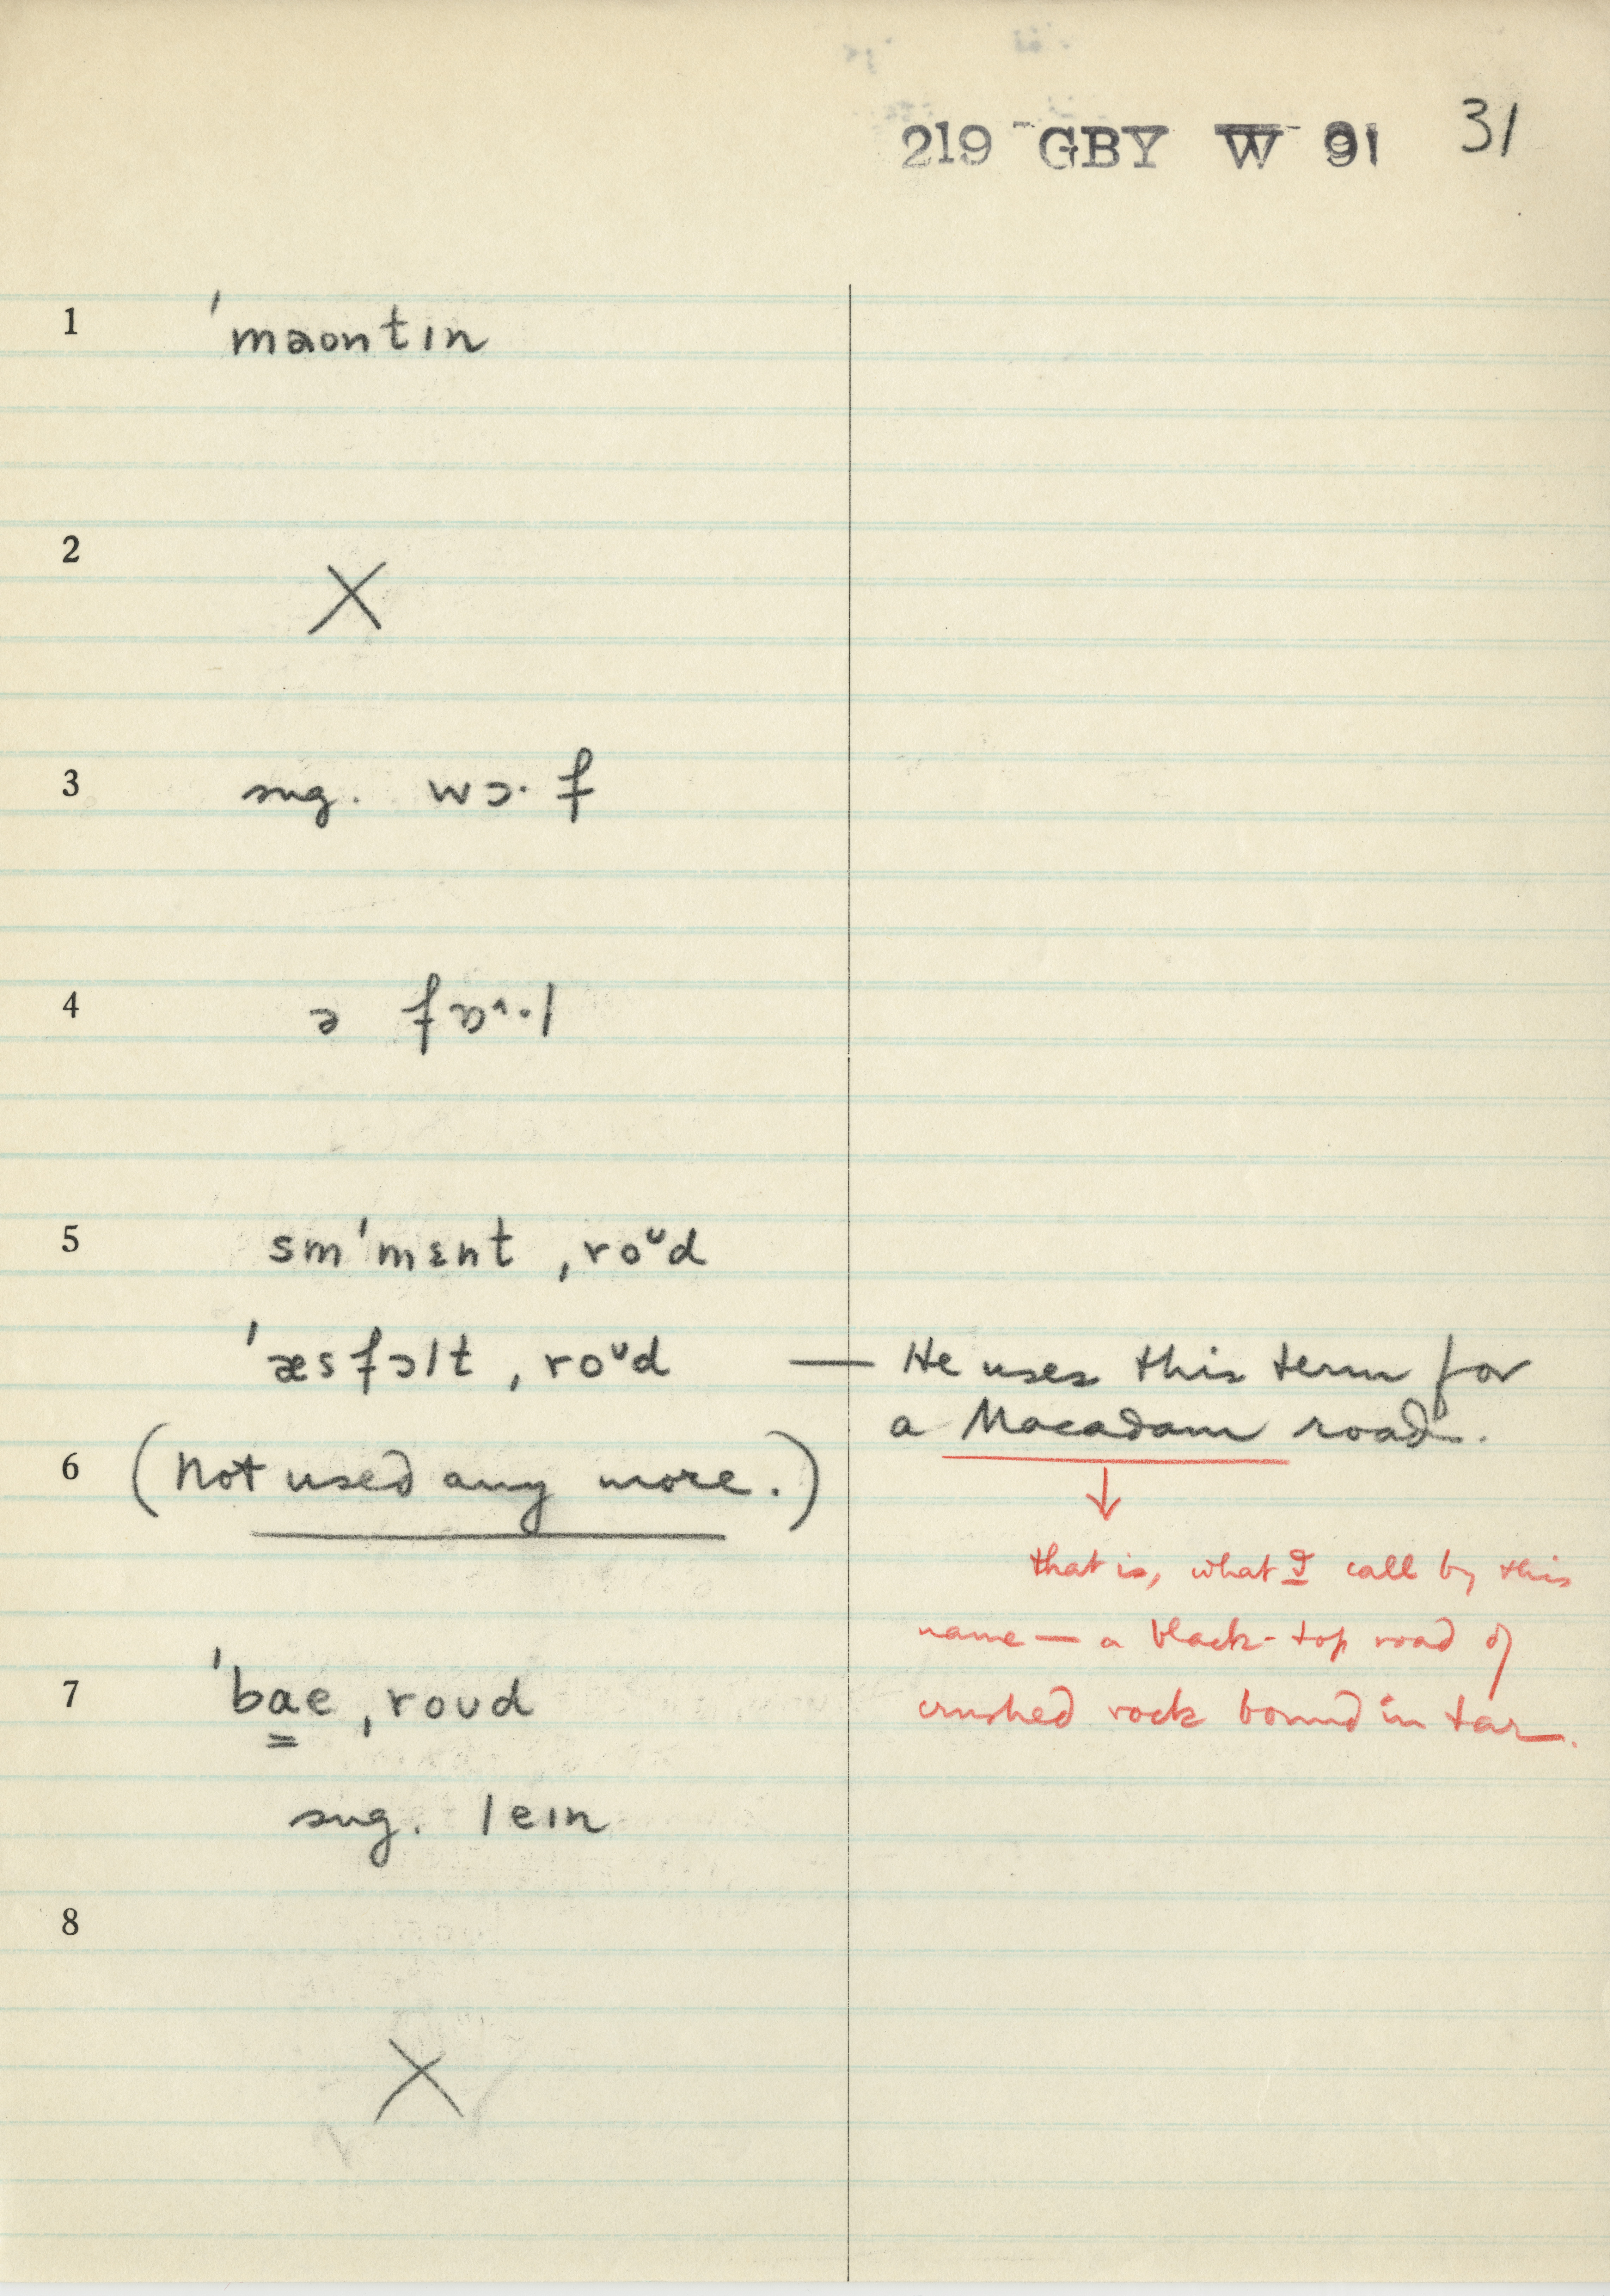 219 GBY W 91 31
1 ˈmaontɪn
2 X
3 sug. wɔ· f
4 ə fɒ^·l
5 sm'mɛnt ˌroᶷd
ˈæsfɔlt ˌroᶷd — He uses this term for
a Macadam road.
6 (Not used any more.)
that is, what I call by this
name — a black-top road of
crushed rock bound in tar.
7 ˈbae ˌroʊd
sug. leɪn
8
X